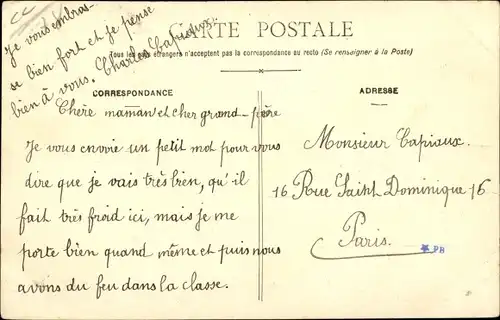 CARTE POSTALE
Tous les pays étrangers n'acceptent pas la correspondance au recto (Se renseigner à la Poste)
CORRESPONDANCE
ADRESSE
Chère maman et cher grand-père
Je vous envoie un petit mot pour vous
dire que je vais très bien, qu'il
fait très froid ici, mais je me
porte bien quand même et puis nous
avons du feu dans la classe.
Je vous embras-
se bien fort et je pense
bien à vous. Charles Capiaux.
Monsieur Capiaux.
16 Rue Saint Dominique 16
Paris.
PB